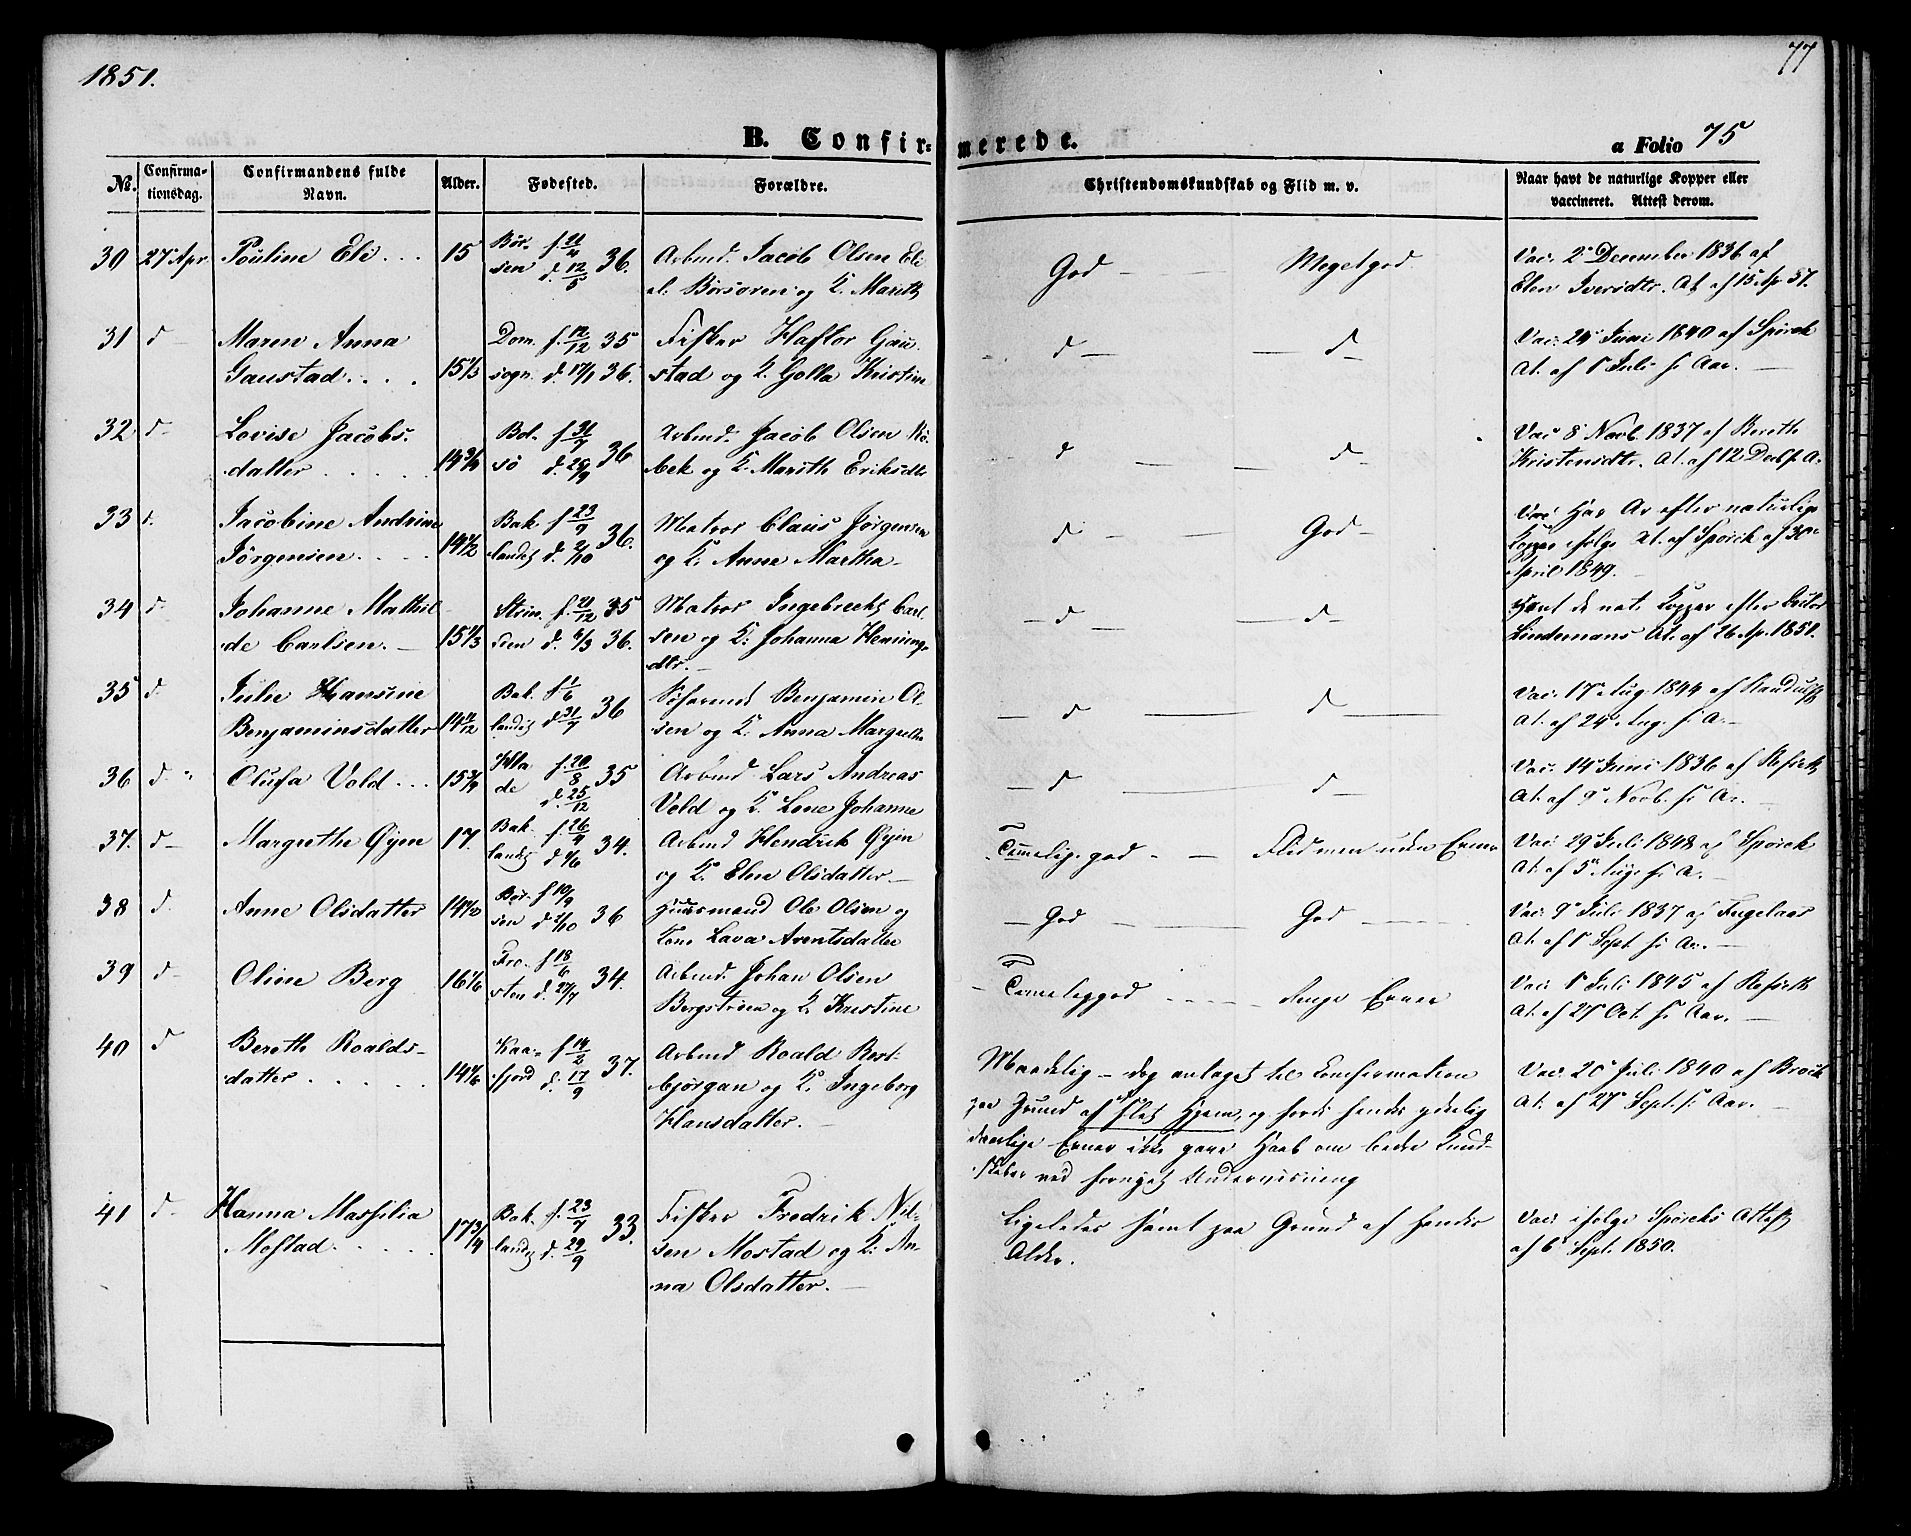 1851.
77
B. Confir-
merede.
a Folio 75
No.
Confirma-
tionsdag.
Confirmandens fulde
Navn.
Alder.
Fødested.
Forældre.
Christendomskundskab og Flid m. v.
Naar havt de naturlige Kopper eller
vaccineret. Attest derom.
30 27 Apr. Pouline Eli . . . 15 Bør- f. 21/4 36. Arbmd. Jacob Olsen Eli God — Megetgod. Vac. 2 December 1836 af
sen d. 12/5 Børsøren og K. Marith Elen Iversdtr. At. af 15 Ap. 37.
31 d— Maren Anna Dom. f. 12/12 35 Fisker Haftor Gau- d— — d— Vac. 24 Juni 1840 af Spørck
Gaustad. . . . 15 1/3 sogn. d. 17/1 36. stad og K. Golla Kristine At. af 1 Juli s. Aar. —
32 d— Lovise Jacobs- Bol- f. 31/7 36 Arbmd. Jacob Olsen d — — d— Vac 8 Novb. 1837 af Bereth
datter . . . . 14 3/4 sø bek og K. Marith Eriksdtr Kristensdtr. At. af 12 Dec. s. A.
33 d. Jacobine Andrine Bak- f. 23/7 36. Matros Claus Jørgensen d — — God— Har Ar efter naturlige
Jørgensen. . . . 14 1/2 landet d. 2/10 og K. Anne Martha. Kopper ifølge At. af Spørck af 30
April 1849.
34 d. Johanne Mathil- Strin- f. 21/12 35 Matros Ingebrecht Carl- —d— — d— Havt de nat. Kopper efter Doctor
de Carlsen. — 15 1/3 d. 6/3 36. sen og K. Johanna Henning- Lindemans At. af 26 Ap. 1851.
dtr. —
35 d. Julie Hansine Bak- f. 1/6 36 Søfarend Benjamin Ol- — d — d — Vac. 17 Aug. 1844 af
Benjaminsdatter 14 11/12 landet d. 31/7 sen og K. Anna Margrethe At. af 24 Aug. s. A.—
36 d. " Olufa Vold . . . 15 3/4 Hla f. 20/8 35 Arbmd Lars Andreas — d — d— Vac. 14 Juni 1836 af
de d. 25/12 Vold og K. Lene Johanne At. af 9 Novb. s. Ar. —
37. d— Margrethe Øyen 17. Bak- f. 26/4 34. Arbmd Hendrik Øyen Temmelig god . — Flid men uden Evner Vac. 29 Juli 1848 af Spørck
landet d. 1/6 og K. Elen Olsdatter — At. af 5 Aug. s. A. —
38 d. Anne Olsdatter 14 1/2 Bør- f 10/9 36 Huusmand Ole Olsen og — God — God — Vac. 9 Juli 1837 af Fugelaas
sen d. 2/10 Kone Lava Arentsdatter At. af 1 Sept s. Ar. —
39 d— Oline Berg 16 1/6 Fro- f 18/6 34. Arbmd. Johan Olsen Temmeliggod — ringe Evner Vac. 1 Juli 1845 af
sten d. 27/7 Bergstrøen og K. Kristine At. af 27 Oct. s. Aar. —
40 d Bereth Roalds- Kaa- f 14/2 37. Arbmd Roald Rest- Maadelig — dog antaget til Confirmation Vac. 20 Juli 1840 af Brock
datter . . . . . 14 1/6 fjord d. 17/9 bjørgan og K. Ingeborg paa Grund af slet Hjem, og fordi hendes yderlig At. af 27 Sept. s. Aar. —
Hansdatter. — daarlige Evner ikke gave Haab om bedre Kund-
skaber ved fornyet Underviisning
41 d— Hanna Massilia 17 3/4 Bak- f. 23/7 33. Fisker Fredrik Nil- Ligeledes samt paa Grund af hendes Vac. ifølge Spørcks Attest
Mostad. . . . . landet d. 29/9 sen Mostad og K: An- Alder. af 6 Sept. 1850.
na Olsdatter. —